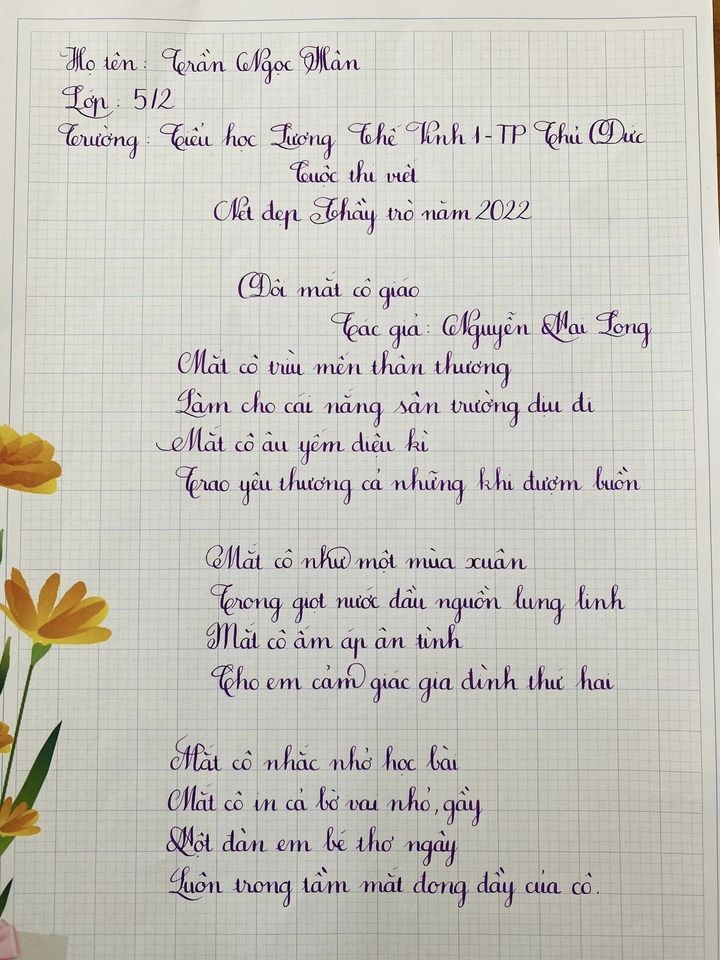 Họ tên: Trần Ngọc Hân
Lớp: 5/2
Trường: Tiểu học Lương Thế Vinh 1 - TP Thủ Đức
Cuộc thi viết
Nét đẹp Thầy trò năm 2022
Đôi mắt cô giáo
Tác giả: Nguyễn Mai Long
Mắt cô trìu mến thân thương
Làm cho cái nắng sân trường dịu đi
Mắt cô âu yếm diệu kì
Trao yêu thương cả những khi đượm buồn
Mắt cô như một mùa xuân
Trong giọt nước đầu nguồn lung linh
Mắt cô ấm áp ân tình
Cho em cảm giác gia đình thứ hai
Mắt cô nhắc nhở học bài
Mắt cô in cả bờ vai nhỏ, gầy
Một đàn em bé thơ ngây
Luôn trong tầm mắt dong đầy của cô.